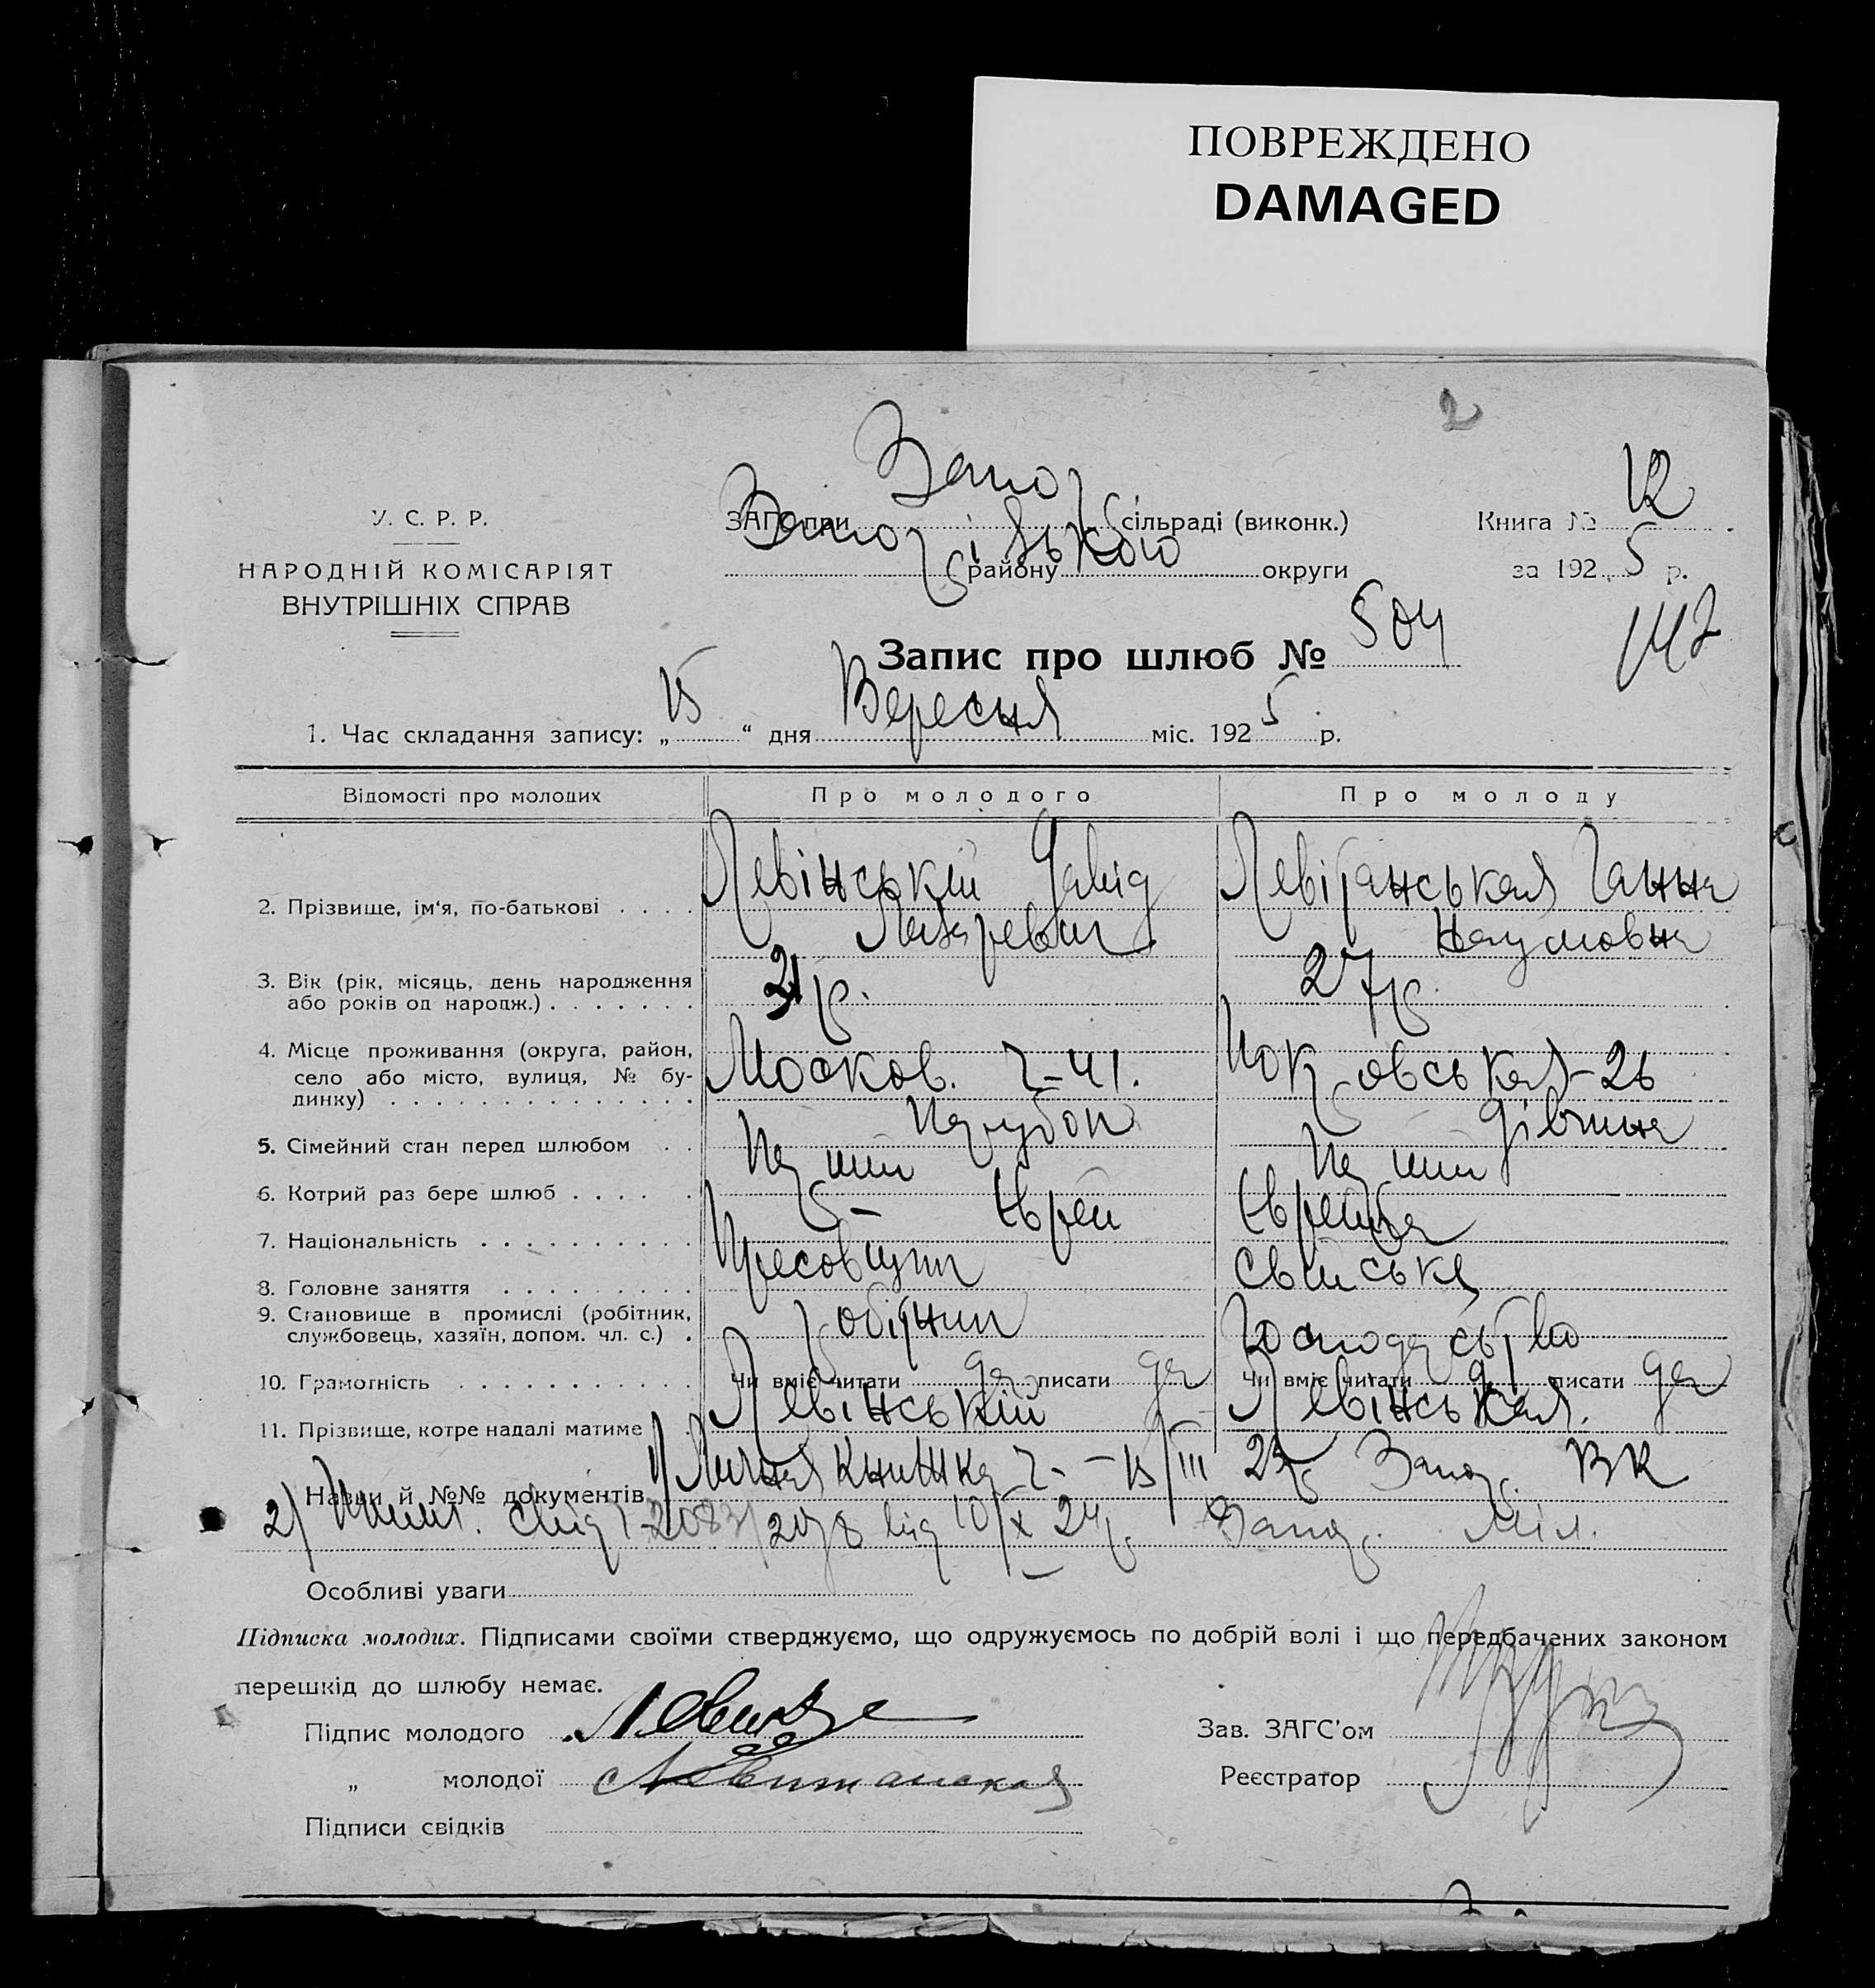 ПОВРЕЖДЕНО
DAMAGED
2
У. С. Р. Р.
НАРОДНІЙ КОМІСАРІЯТ
ВНУТРІШНІХ СПРАВ
ЗАГС при Запор сільраді (виконк.)
району округи
Книга № 12
за 1925 р.
147
Запис про шлюб № 504
1. Час складання запису: „ 15 “ дня Вересня міс. 1925 р.
Відомості про молодих Про молодого Про молоду
2. Прізвище, ім‘я, по-батькові . . . . Левінський Давід Левітанськая Ганна
Лазаревич Наумовна
3. Вік (рік, місяць, день народження
або років од народж.) . . . . . . . р. 27 р.
4. Місце проживання (округа, район,
село або місто, вулиця, № бу-
динку) . . . . . . . . . . . . . . Москов. 41. Покровськая - 26
5. Сімейний стан перед шлюбом . . Парубок Дівчина
6. Котрий раз бере шлюб . . . . . Перший Перший
7. Національність . . . . . . . . . . Єврей Єврейка
8. Головне заняття . . . . . . . . . Пресовщик Свійське
9. Становище в промислі (робітник,
службовець, хазяїн, допом. чл. с.) . робітник Господарство
10. Грамотність . . . . . . . . . . . Чи вміє читати да писати да Чи вміє читати да писати да
11. Прізвище, котре надалі матиме . Левінський Левінськая.
Назви й №№ документів 1) Личная книжка 15/III 25 р. Запор. ВК
2) від 10/X 24 р. Запор. Міл.
Особливі уваги
Підписка молодих. Підписами своїми стверджуємо, що одружуємось по добрій волі і що передбачених законом
перешкід до шлюбу немає.
Підпис молодого Зав. ЗАГС'ом
„ молодої Левитанская Реєстратор
Підписи свідків